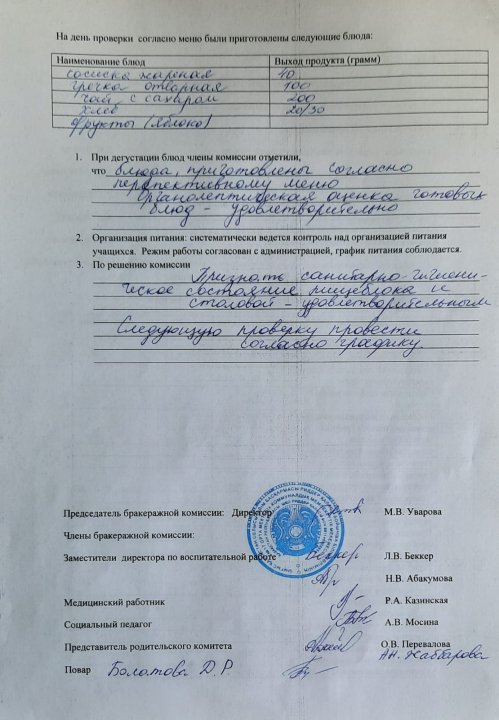 На день проверки согласно меню были приготовлены следующие блюда:
Наименование блюд Выход продукта (грамм)
сосиска жареная 40
гречка отварная 100
чай с сахаром 200
хлеб 20/30
фрукты (яблоко)
1. При дегустации блюд члены комиссии отметили,
что блюда, приготовлены согласно
перспективному меню
Органолептическая оценка готовых
блюд - удовлетворительно
2. Организация питания: систематически ведется контроль над организацией питания
учащихся. Режим работы согласован с администрацией, график питания соблюдается.
3. По решению комиссии
Признать санитарно-гигиени-
ческое состояние пищеблока и
столовой - удовлетворительным
Следующую проверку провести
согласно графику.
Председатель бракеражной комиссии: Директор М.В. Уварова
Члены бракеражной комиссии:
Заместители директора по воспитательной работе Л.В. Беккер
Н.В. Абакумова
Медицинский работник Р.А. Казинская
Социальный педагог А.В. Мосина
Представитель родительского комитета О.В. Перевалова
А.Н. Жаббарова
Повар Болатова Д.Р.